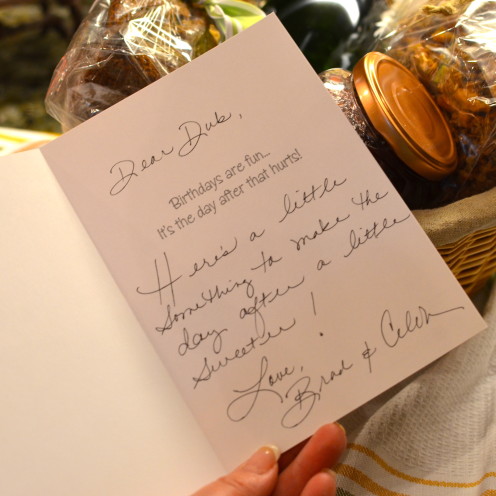 Dear Dub,
Birthdays are fun...
It's the day after that hurts!
Here's a little
something to make the
day after a little
sweeter!
Love,
Brad &